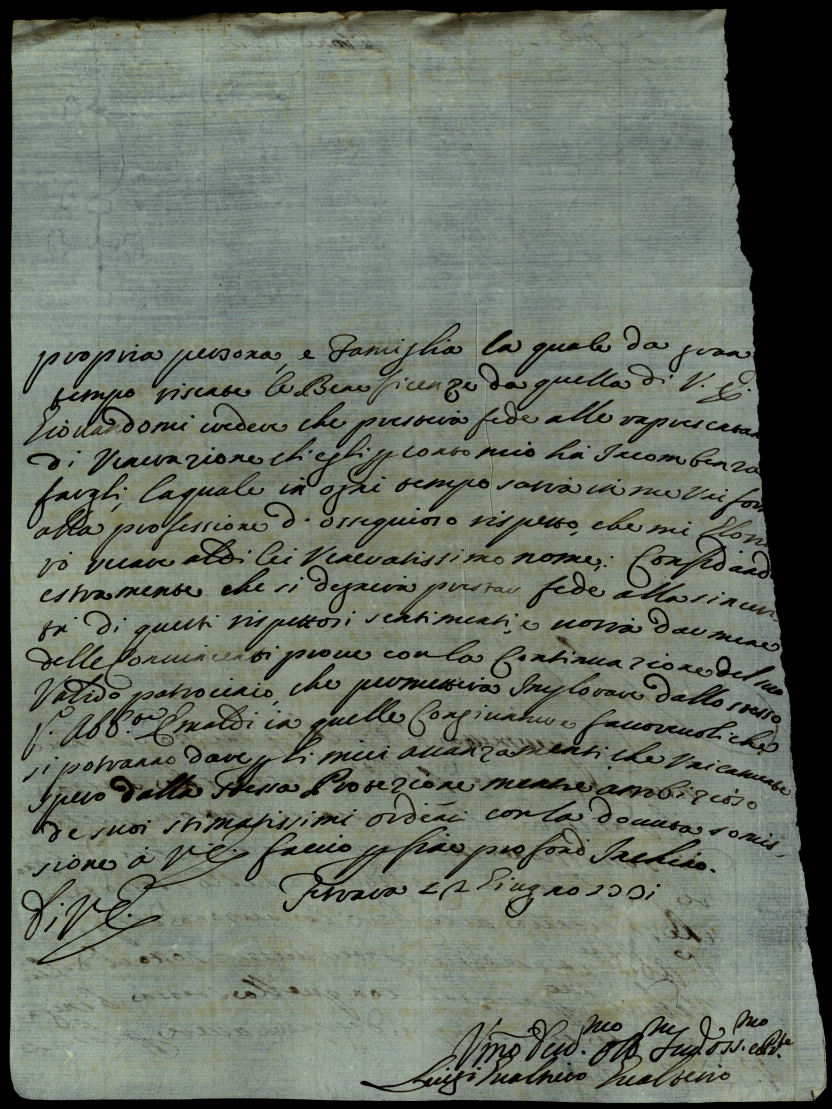 propria persona, e Famiglia la quale da gran
tempo riscente le Beneficenze da quella di V. E.
Giovandomi credere che presterà fede alle rapresentan
di Venerazione ch'egli p conto mio hà Incombenza
fargli, laquale in ogni tempo sarà in me
alla professione d'ossequioso rispetto, che mi Glorie
rò recare al di lei Veneratissimo nome; Confidand
estramente che si degnerà prestar fede alla sincer
tà di questi rispettosi sentimenti, e vorrà darmene
delle Convincenti prove con la Continuazione del suo
Valido patrocinio, che permetterà Implorare dallo stesso
Sr. Abb.te Emaldi in quelle Congiunture favorevoli che
si potranno dare p gli miei avanzamenti che Unicamente
spero dalla stessa Protezione mentre ambizioso
de suoi stimatissimi ordini con la dovuta somis,
sione à V. E. faccio p fine profond Inchino.
Di V. E.
Ferrara Giugno
Umo Dev.mo Obb.mo Ser.
Luigi Gualengo